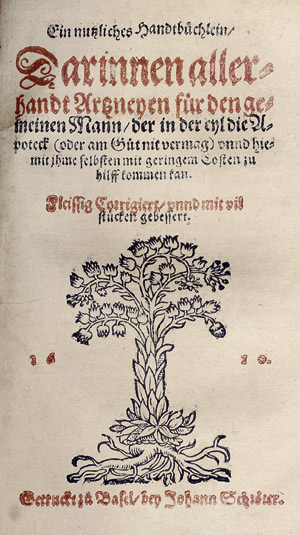 Ein nutzliches Handtbüchlein/
Darinnen aller-
handt Artzneyen für den ge-
meinen Mann/ der in der eyl die A-
poteck (oder am Güt nit vermag) vnnd hie-
mit jhme selbsten mit geringem Costen zu
hilff kommen kan.
Fleissig Corrigiert/ vnnd mit vil
stucken gebessert.
1 6 1 0.
Getruckt zů Basel/ bey Johann Schröter.